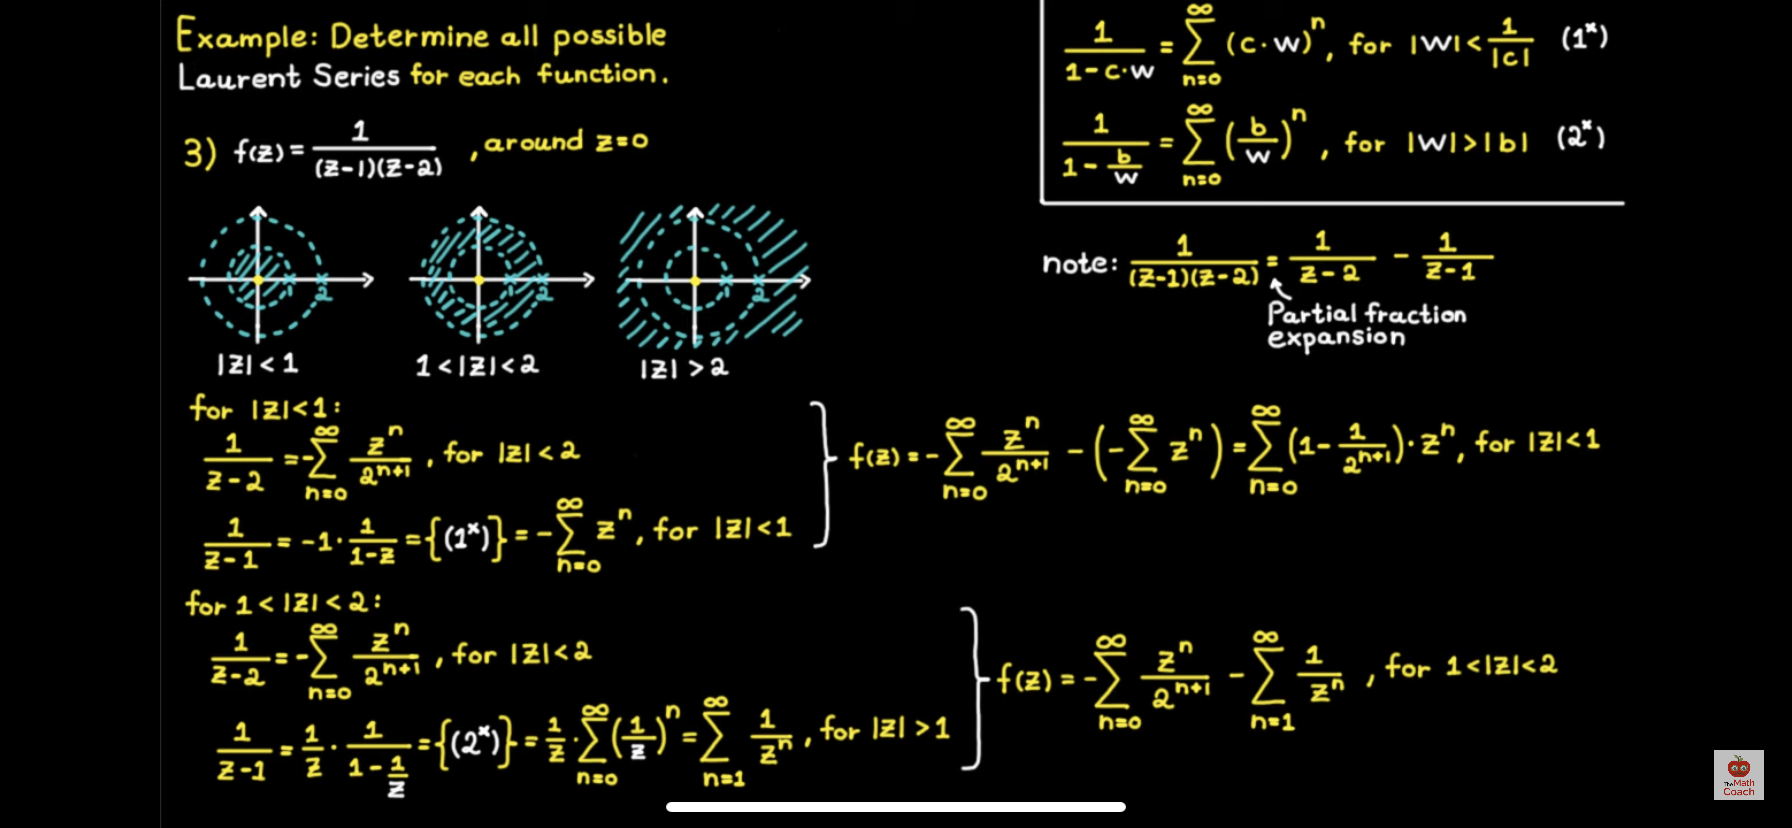 Example: Determine all possible
Laurent Series for each function.
3) f(z) = 1/((z-1)(z-2)), around z=0
1/(1-c·w) = ∑_{n=0}^{∞} (c·w)^n, for |w| < 1/|c| (1*)
1/(1 - b/w) = ∑_{n=0}^{∞} (b/w)^n, for |w| > |b| (2*)
note: 1/((z-1)(z-2)) = 1/(z-2) - 1/(z-1)
Partial fraction
expansion
2
2
2
|z| < 1
1 < |z| < 2
|z| > 2
for |z| < 1:
1/(z-2) = -∑_{n=0}^{∞} z^n/2^{n+1}, for |z| < 2
1/(z-1) = -1 · 1/(1-z) = {(1*)} = -∑_{n=0}^{∞} z^n, for |z| < 1
f(z) = -∑_{n=0}^{∞} z^n/2^{n+1} - (-∑_{n=0}^{∞} z^n) = ∑_{n=0}^{∞} (1 - 1/2^{n+1}) · z^n, for |z| < 1
for 1 < |z| < 2:
1/(z-2) = -∑_{n=0}^{∞} z^n/2^{n+1}, for |z| < 2
1/(z-1) = 1/z · 1/(1 - 1/z) = {(2*)} = 1/z · ∑_{n=0}^{∞} (1/z)^n = ∑_{n=1}^{∞} 1/z^n, for |z| > 1
f(z) = -∑_{n=0}^{∞} z^n/2^{n+1} - ∑_{n=1}^{∞} 1/z^n, for 1 < |z| < 2
The Math
Coach